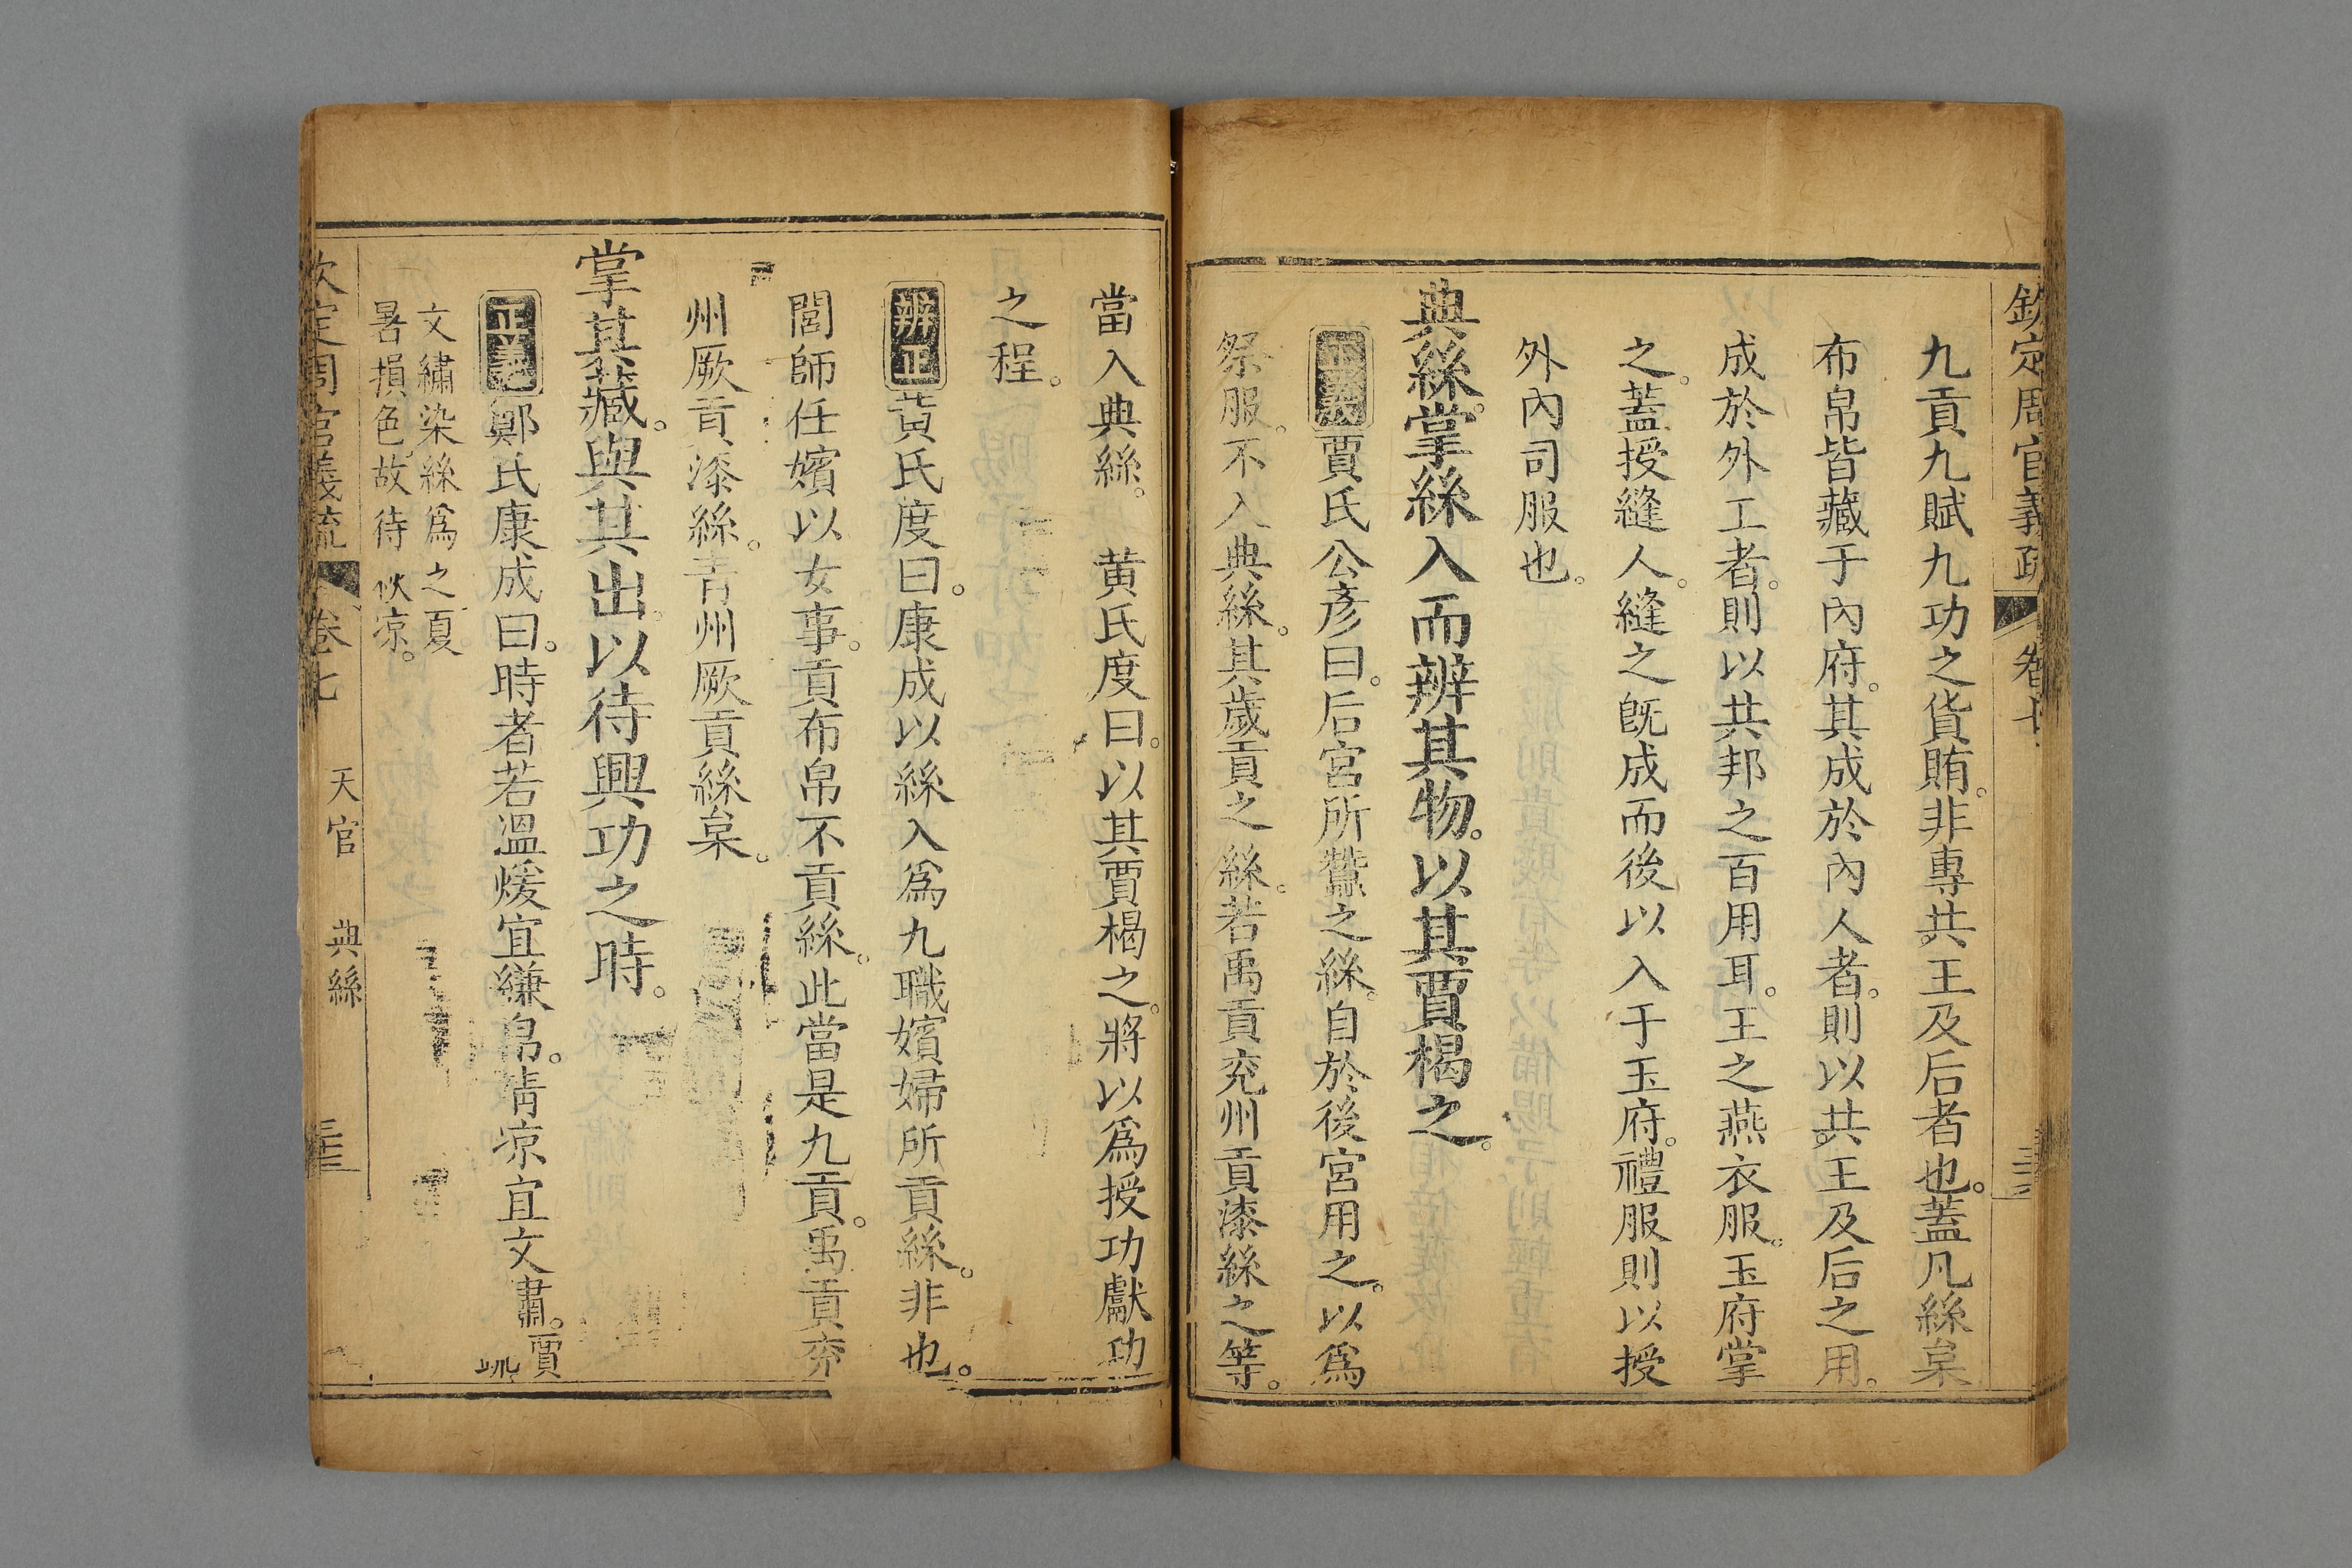 欽定周官義疏 卷七
九貢九賦九功之貨賄。非專共王及后者也。蓋凡絲枲
布帛皆藏于內府。其成於內人者。則以共王及后之用。
成於外工者。則以共邦之百用耳。王之燕衣服。玉府掌
之。蓋授縫人。縫之旣成而後以入于玉府。禮服則以授
外內司服也。
典絲。掌絲入而辨其物。以其賈楬之。
正義 賈氏公彥曰。后宮所蠶之絲。自於後宮用之。以爲
祭服。不入典絲。其歲貢之絲。若禹貢兖州貢漆絲之等。
當入典絲。 黃氏度曰。以其賈楬之。將以爲授功獻功
之程。
辨正 黃氏度曰。康成以絲入爲九職嬪婦所貢絲。非也。
閭師任嬪以女事。貢布帛不貢絲。此當是九貢。禹貢兖
州厥貢漆絲。青州厥貢絲枲。
掌其藏。與其出。以待興功之時。
正義 鄭氏康成曰。時者若溫煖宜縑帛。淸凉宜文繡。賈
文繡染絲爲之夏
暑損色。故待秋凉。
欽定周官義疏 卷七 天官 典絲